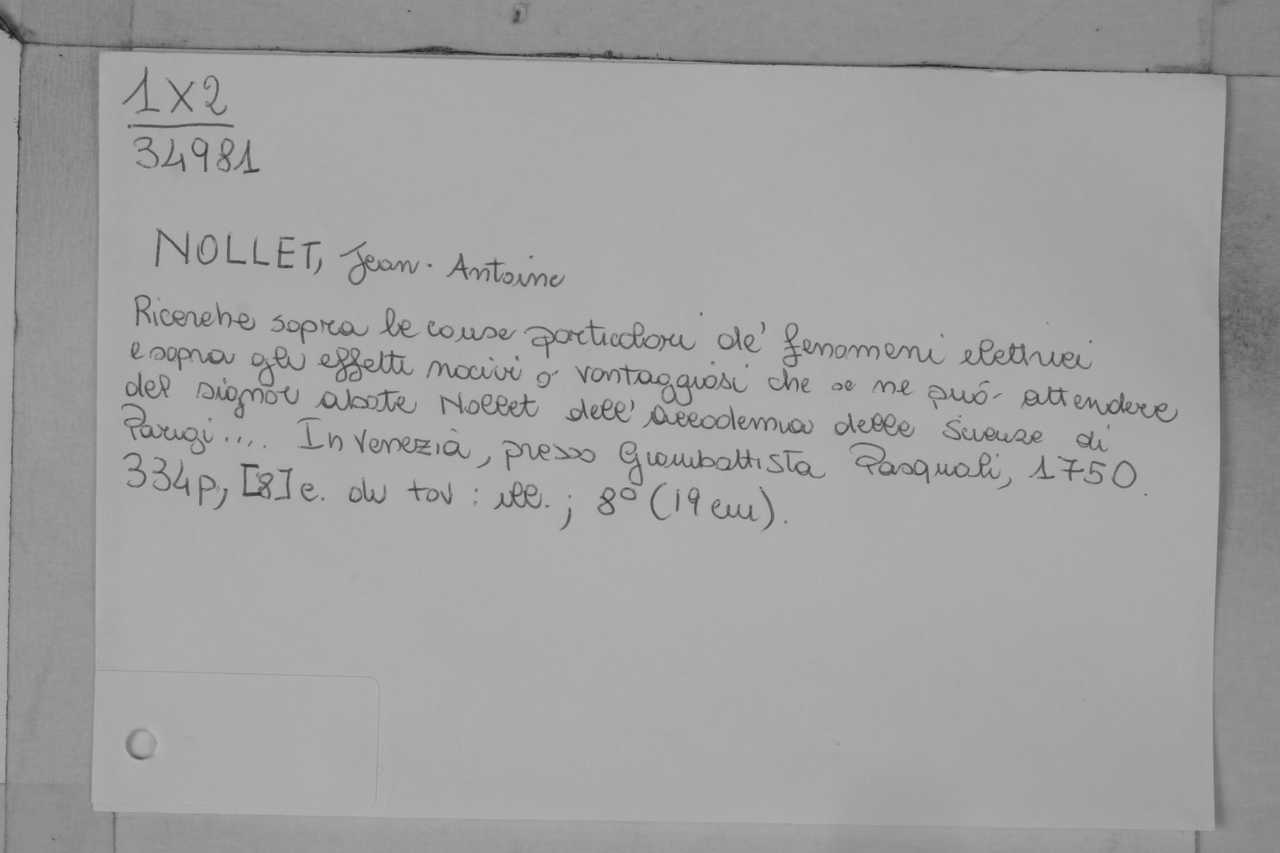 1X2
34981
NOLLET, Jean-Antoine
Ricerche sopra le cause particolari de' fenomeni elettrici
e sopra gli effetti nocivi o vantaggiosi che se ne può attendere
del signor abate Nollet dell' Accademia delle Scienze di
Parigi.... In Venezia, presso Giambattista Pasquali, 1750.
334p, [8] c. di tav : ill. ; 8° (19 cm).